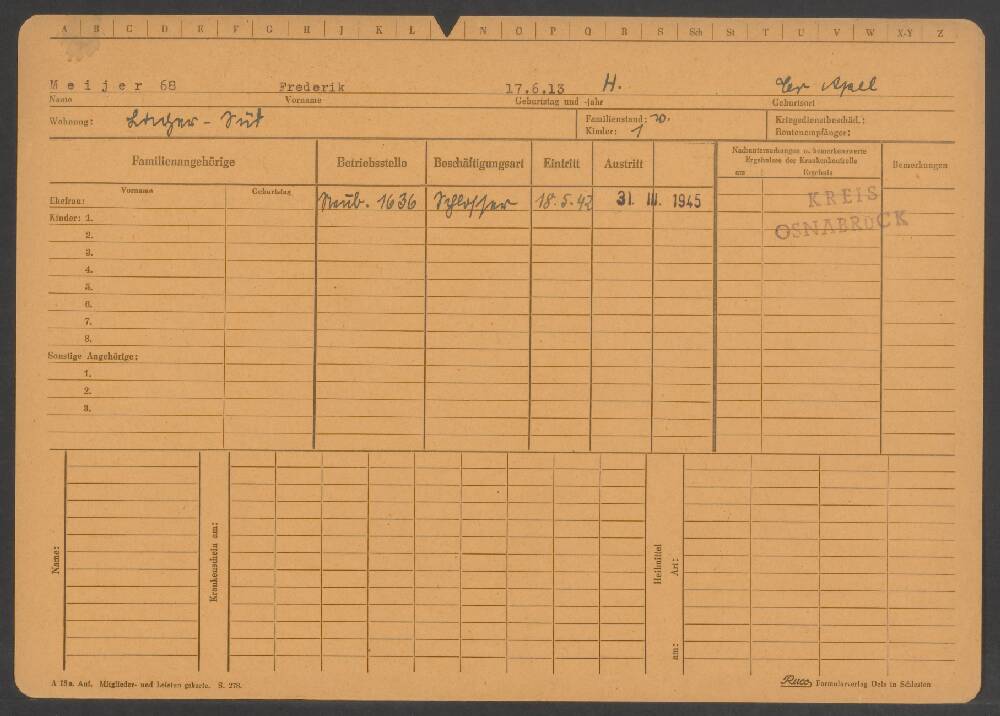 A B C D E F G H J K L N O P Q R S Sch St T U V W X-Y Z
Meijer 68 Frederik 17.6.13 H.
Name Vorname Geburtstag und -jahr Geburtsort
Wohnung: Lager - Süd Familienstand: Kriegsdienstbeschäd.:
Kinder: 1 Rentenempfänger:
Familienangehörige Betriebsstelle Beschäftigungsart Eintritt Austritt Nachuntersuchungen u. bemerkenswerte Ergebnisse der Krankenkontrolle Bemerkungen
am Ergebnis
Vorname Geburtstag
Ehefrau: Neub. 1636 Schlosser 18.5.42 31. III. 1945 KREIS
Kinder: 1.
OSNABRÜCK
2.
3.
4.
5.
6.
7.
8.
Sonstige Angehörige:
1.
2.
3.
Name:
Krankenschein am:
Heilmittel
Art:
am:
A 18a. Auf. Mitglieder- und Leistungskarte. S. 278.
Ruco, Formularverlag Oels in Schlesien